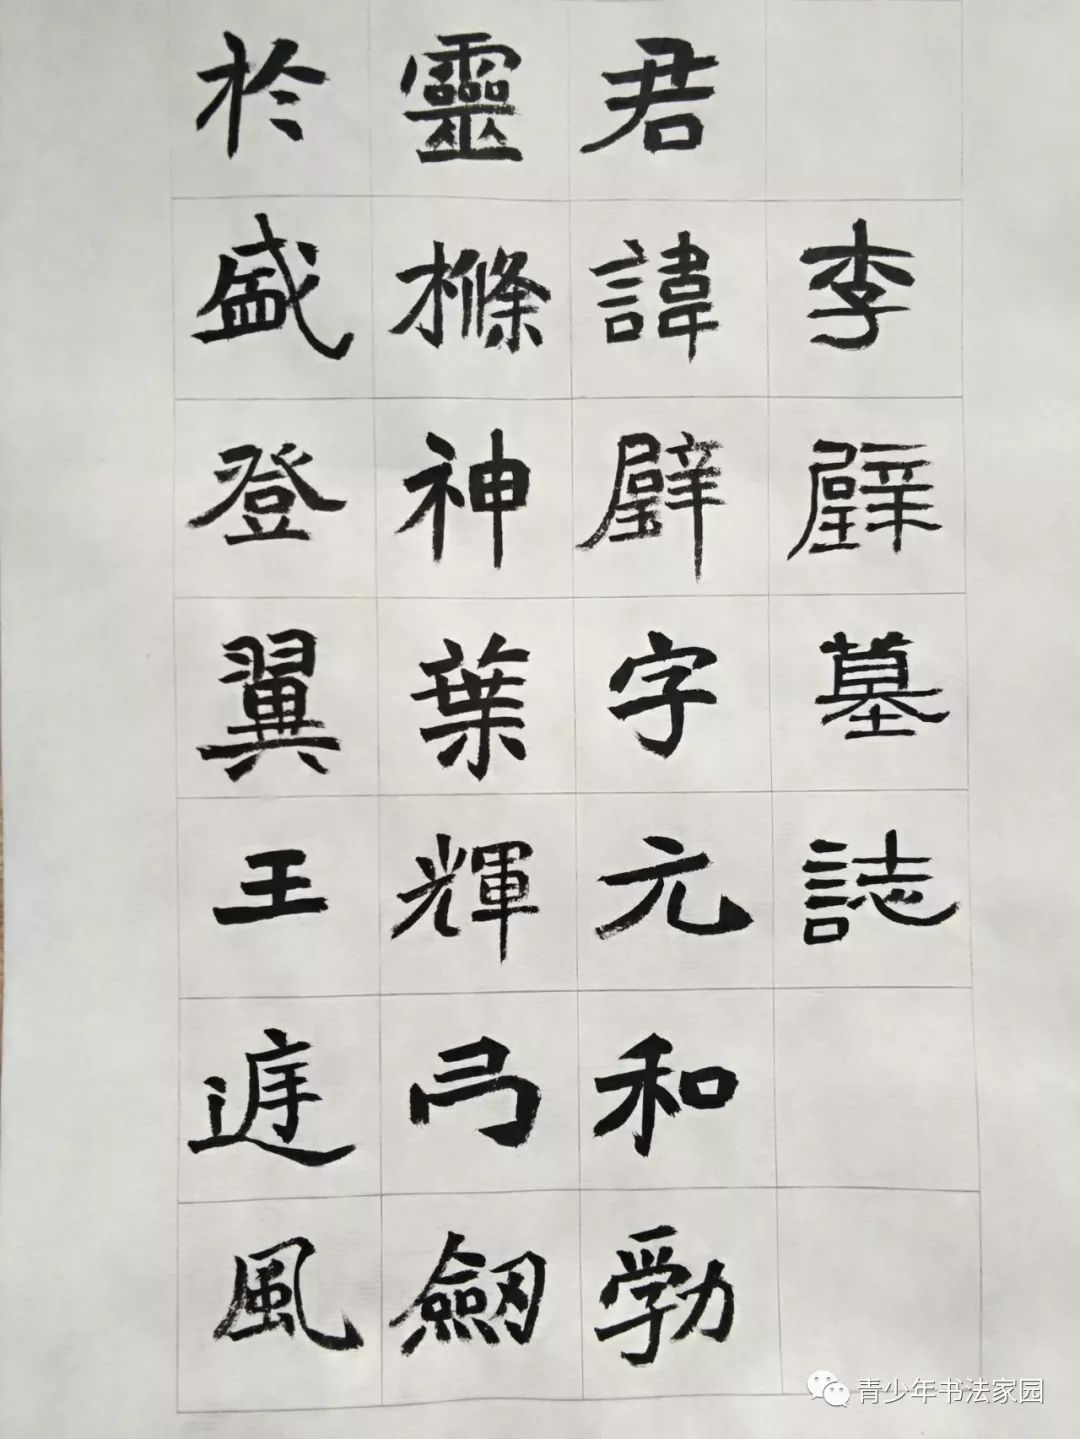 李璧墓誌
君諱璧字元和勃
靈樤神葉輝弓劒
於盛登翼王遅風
青少年书法家园